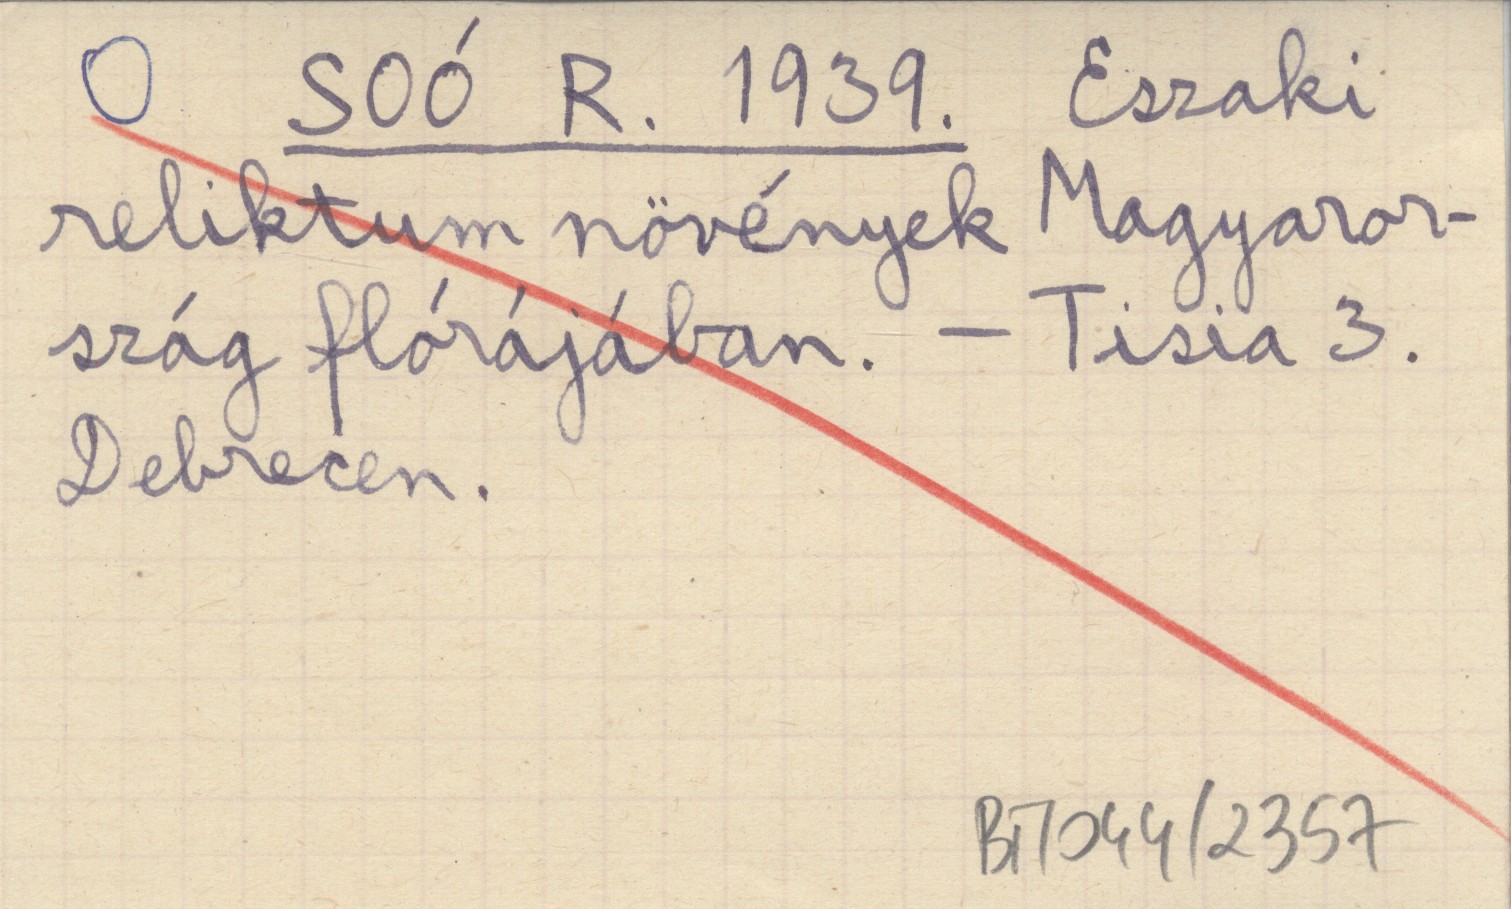 O SOÓ R. 1939. Eszaki
reliktum növények Magyaror-
szág flórájában. — Tisia 3.
Debrecen.
/2357